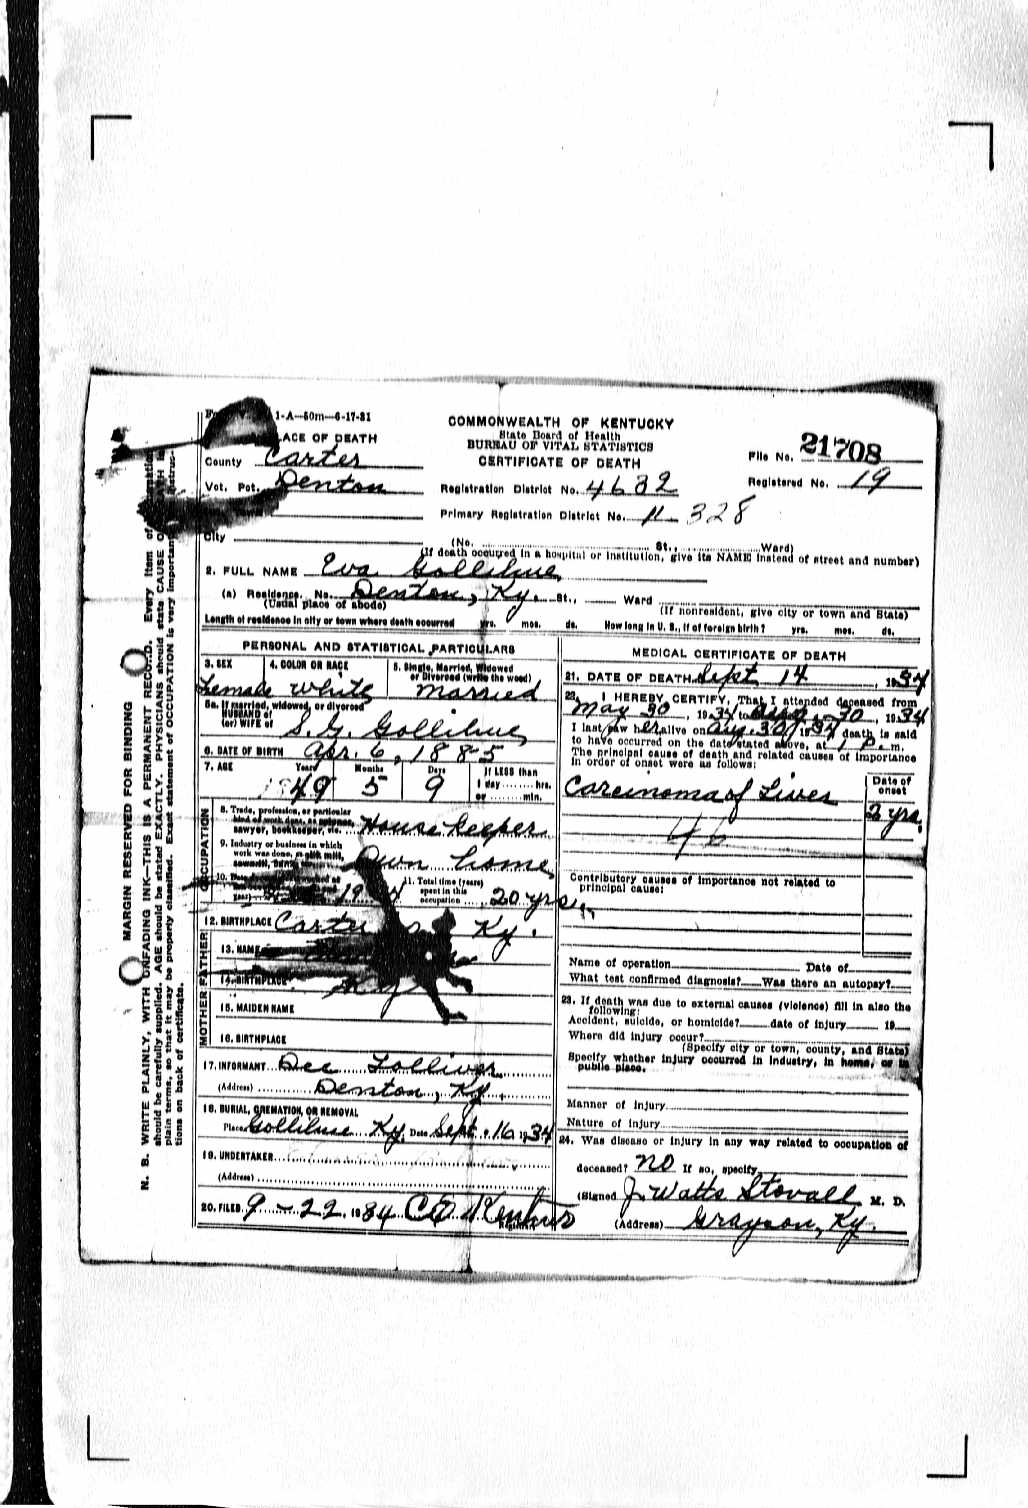 1-A—50m—6-17-31
COMMONWEALTH OF KENTUCKY
State Board of Health
BUREAU OF VITAL STATISTICS
CERTIFICATE OF DEATH
File No. 21708
Registered No. 19
LACE OF DEATH
County Carter
Vot. Pct. Denton
Registration District No. 4632
Primary Registration District No. 11 328
City
(No. St., Ward)
(If death occurred in a hospital or institution, give its NAME instead of street and number)
2. FULL NAME Eva Gollihue
(a) Residence. No. Denton, Ky. St., Ward
(Usual place of abode) (If nonresident, give city or town and State)
Length of residence in city or town where death occurred yrs. mos. ds. How long in U. S., if of foreign birth? yrs. mos. ds.
PERSONAL AND STATISTICAL PARTICULARS
3. SEX 4. COLOR OR RACE 5. Single, Married, Widowed
or Divorced (write the word)
Female White married
5a. If married, widowed, or divorced
HUSBAND of
(or) WIFE of S. G. Gollihue
6. DATE OF BIRTH Apr. 6, 1885
7. AGE Years Months Days If LESS than
49 5 9 1 day hrs.
or min.
OCCUPATION
8. Trade, profession, or particular
kind of work done, as spinner,
sawyer, bookkeeper, etc. House keeper
9. Industry or business in which
work was done, as silk mill,
sawmill, Own home
10. 11. Total time (years)
spent in this
occupation 20 yrs
12. BIRTHPLACE Ky.
FATHER
13. NAME
14. BIRTHPLACE Ky
MOTHER
15. MAIDEN NAME
16. BIRTHPLACE
17. INFORMANT Dee
(Address) Denton, Ky
18. BURIAL, CREMATION, OR REMOVAL
Place Gollihue Ky, Date Sept. 16 1934
19. UNDERTAKER
(Address)
20. FILED 9-22 1934
Registrar
MEDICAL CERTIFICATE OF DEATH
21. DATE OF DEATH Sept 14, 1934
22. I HEREBY CERTIFY, That I attended deceased from
May 30, 1934 to Aug 30, 1934
I last saw her alive on Aug. 30, 1934 death is said
to have occurred on the date stated above, at 1 P. m.
The principal cause of death and related causes of importance
in order of onset were as follows:
Date of
onset
Carcinoma of Liver 2 yrs.
46
Contributory causes of importance not related to
principal cause:
Name of operation Date of
What test confirmed diagnosis? Was there an autopsy?
23. If death was due to external causes (violence) fill in also the
following:
Accident, suicide, or homicide? date of injury 19
Where did injury occur?
(Specify city or town, county, and State)
Specify whether injury occurred in industry, in home, or in
public place.
Manner of injury
Nature of injury
24. Was disease or injury in any way related to occupation of
deceased? no If so, specify
(Signed J. Watts Stovall M. D.
(Address) Grayson, Ky.
MARGIN RESERVED FOR BINDING
N. B. WRITE PLAINLY, WITH UNFADING INK—THIS IS A PERMANENT RECORD. Every item of
should be carefully supplied. AGE should be stated EXACTLY. PHYSICIANS should state CAUSE
plain terms, so that it may be properly classified. Exact statement of OCCUPATION is very important.
tions on back of certificate.